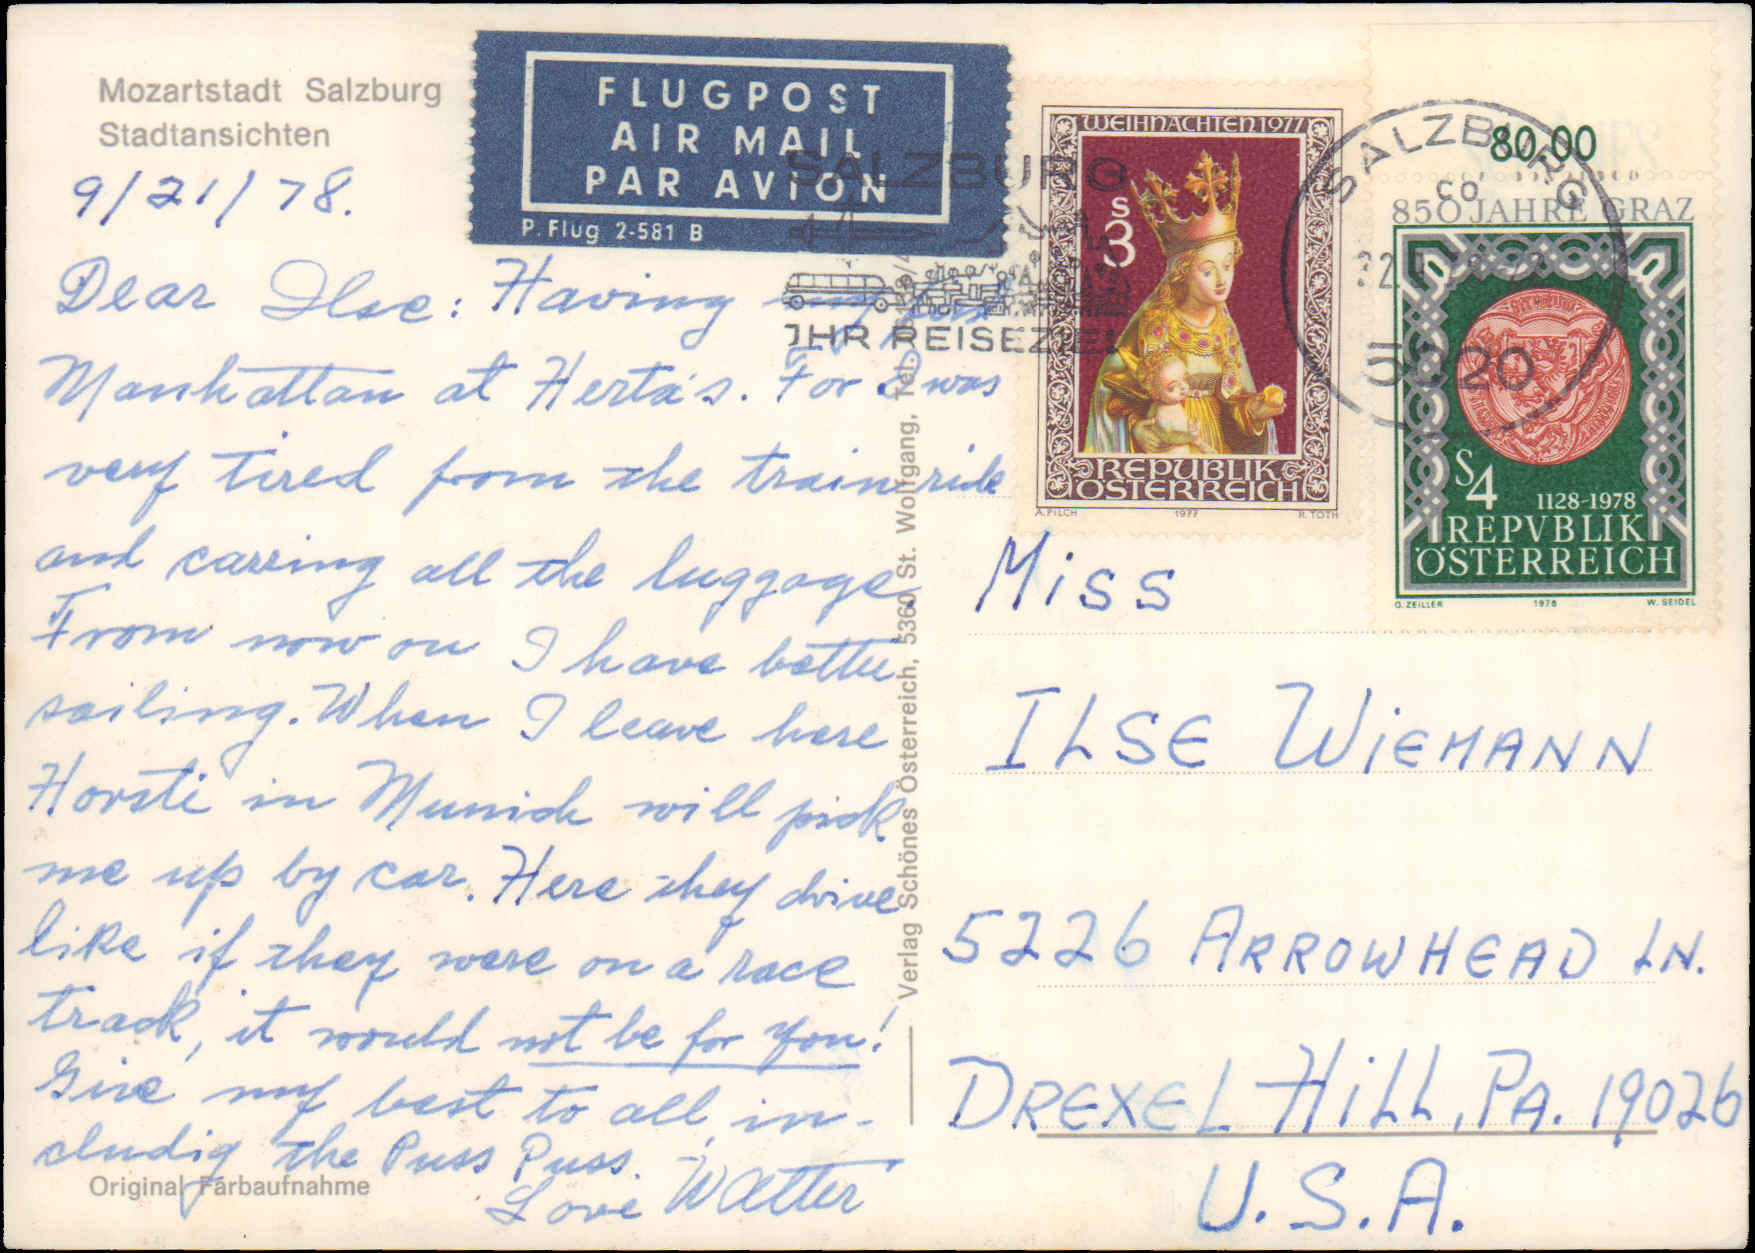 Mozartstadt Salzburg
Stadtansichten
9/21/78.
FLUGPOST
AIR MAIL
PAR AVION
P. Flug 2-581 B
SALZBURG
IHR REISEZIEL
WEIHNACHTEN 1977
S 3
REPUBLIK
ÖSTERREICH
A. PILCH 1977 R. TOTH
80,00
SALZBURG
5020
850 JAHRE GRAZ
S 4
1128-1978
REPVBLIK
ÖSTERREICH
O. ZEILLER 1978 W. SEIDEL
Dear Ilse: Having my first
Manhattan at Herta's. For I was
very tired from the train ride
and carring all the luggage.
From now on I have better
sailing. When I leave here
Horsti in Munich will pick
me up by car. Here they drive
like if they were on a race
track, it would not be for you!
Give my best to all, in-
cludig the Puss Puss.
Love Walter
Original Farbaufnahme
Verlag Schönes Österreich, 5360 St. Wolfgang, Tel.
Miss
ILSE WIEMANN
5226 ARROWHEAD LN.
DREXEL HILL, PA. 19026
U.S.A.